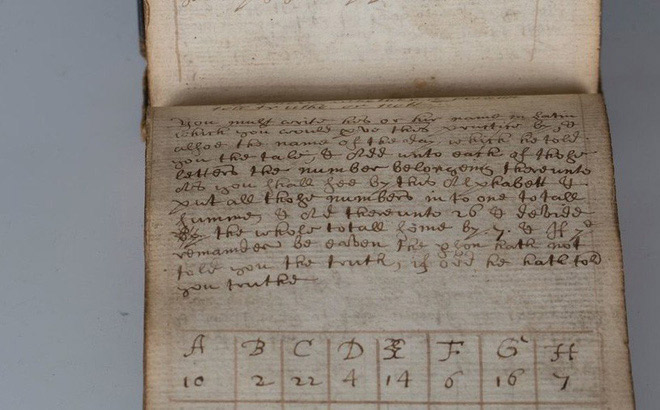 You must write his or hir name in Latin
which you would prove this practice by, &
allsoe the name of the day which he told
you the tale, & Add unto each of those
letters the number belongeing thereunto
As you shall see by this Alphabett &
put all those numbers in to one totall
summe, & Ad thereunto 26 & devide
the whole totall some by .7. & If ye
remainder be eaven the pson hath not
told you the truth, if odd he hath told
you truthe
A B C D E F G H
10 2 22 4 14 6 16 7